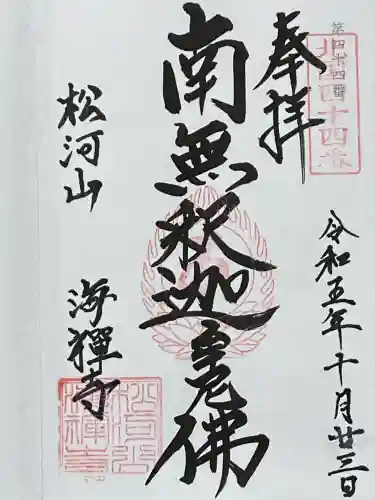 第四十四番
奉拝
令和五年十月廿三日
南無釈迦牟尼佛
松河山
海禅寺